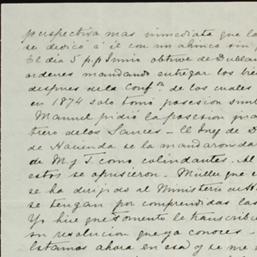 perspectiva mas inmediata que la
se dedicó á él con un ahinco sin
El dia 5 p.p Junio obtuve de Dublan
ordenes mandando entregar los
despues de la Confn. de los cuales
en 1874 solo tomó posesion
Manuel pidió la posesion
de los Sauces - El Juez de D
de Hacienda se la mandaron da
de M y J como, colindantes. Al
estos se opusieron. Muller que
se ha dirijido al Ministerio
se tengan por comprendidas las
Yo hice que Romento le transcribi
sin resolucion que ya conoces -
Estamos ahora en esa) y se me